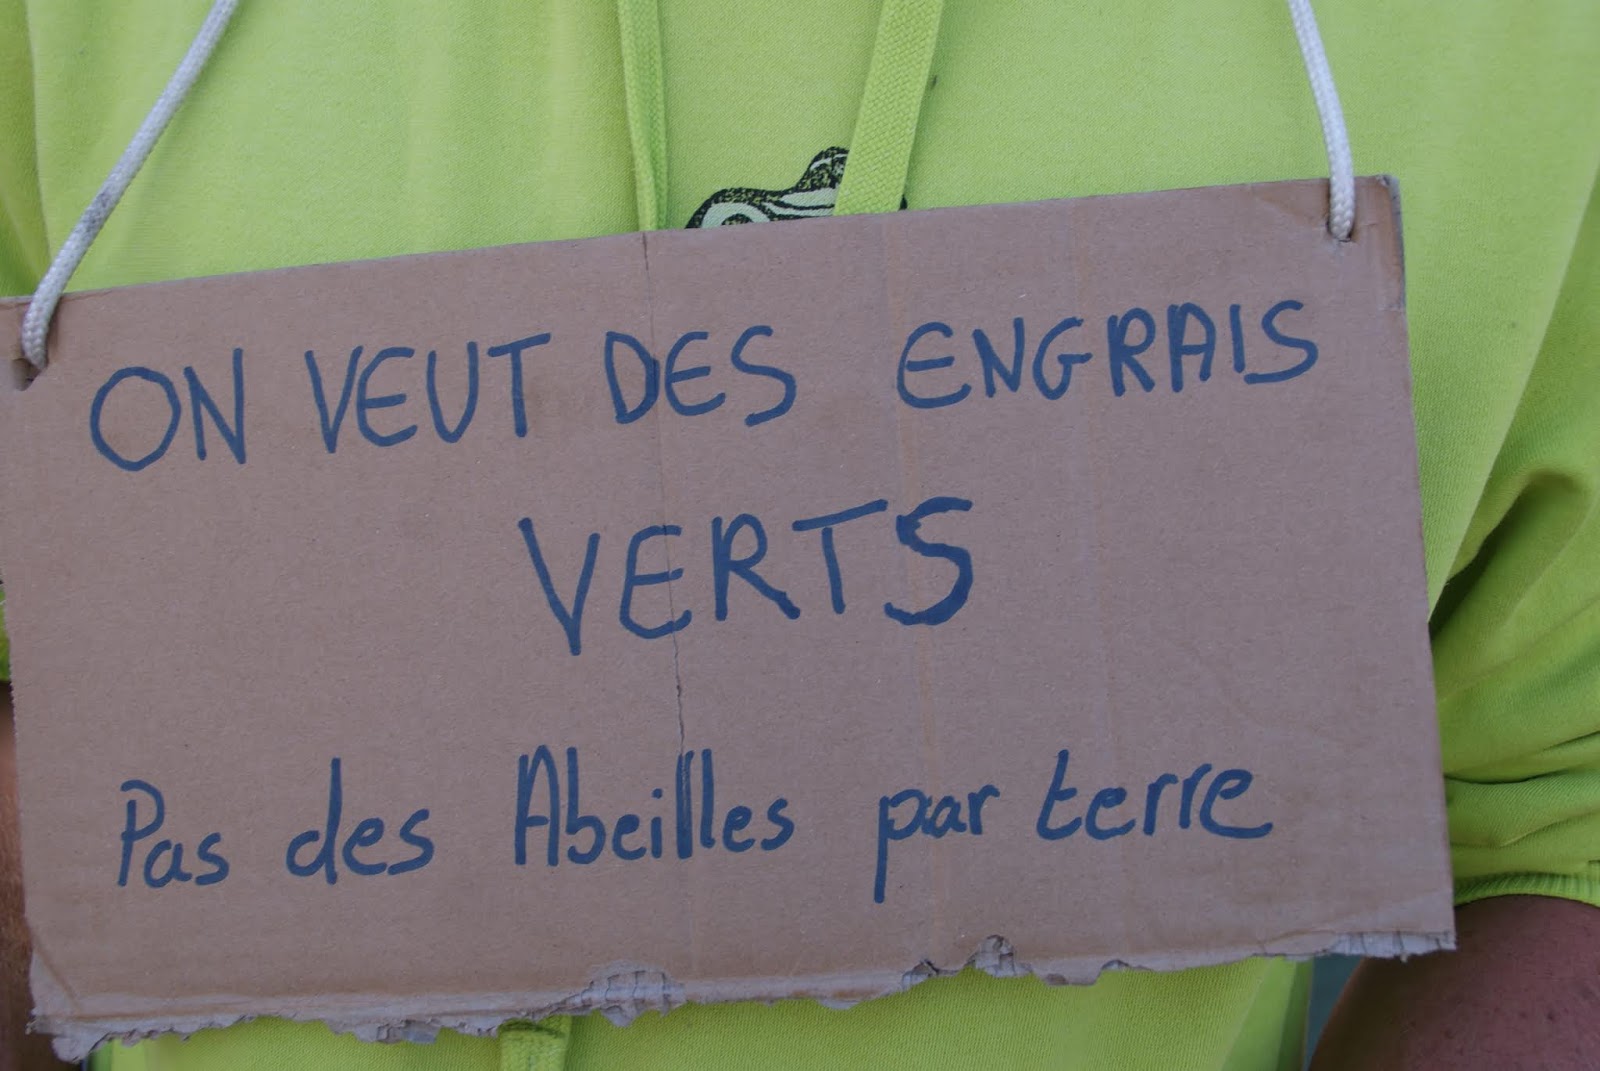 ON VEUT DES ENGRAIS
VERTS
Pas des Abeilles par terre